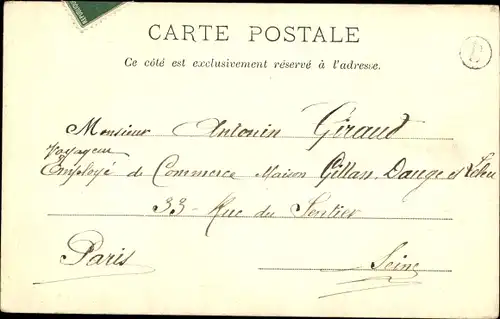 CARTE POSTALE
Ce côté est exclusivement réservé à l'adresse.
Monsieur Antonin Giraud
Voyageur
Employé de Commerce Maison Gillan, Dauge et
33 Rue du Sentier
Paris Seine